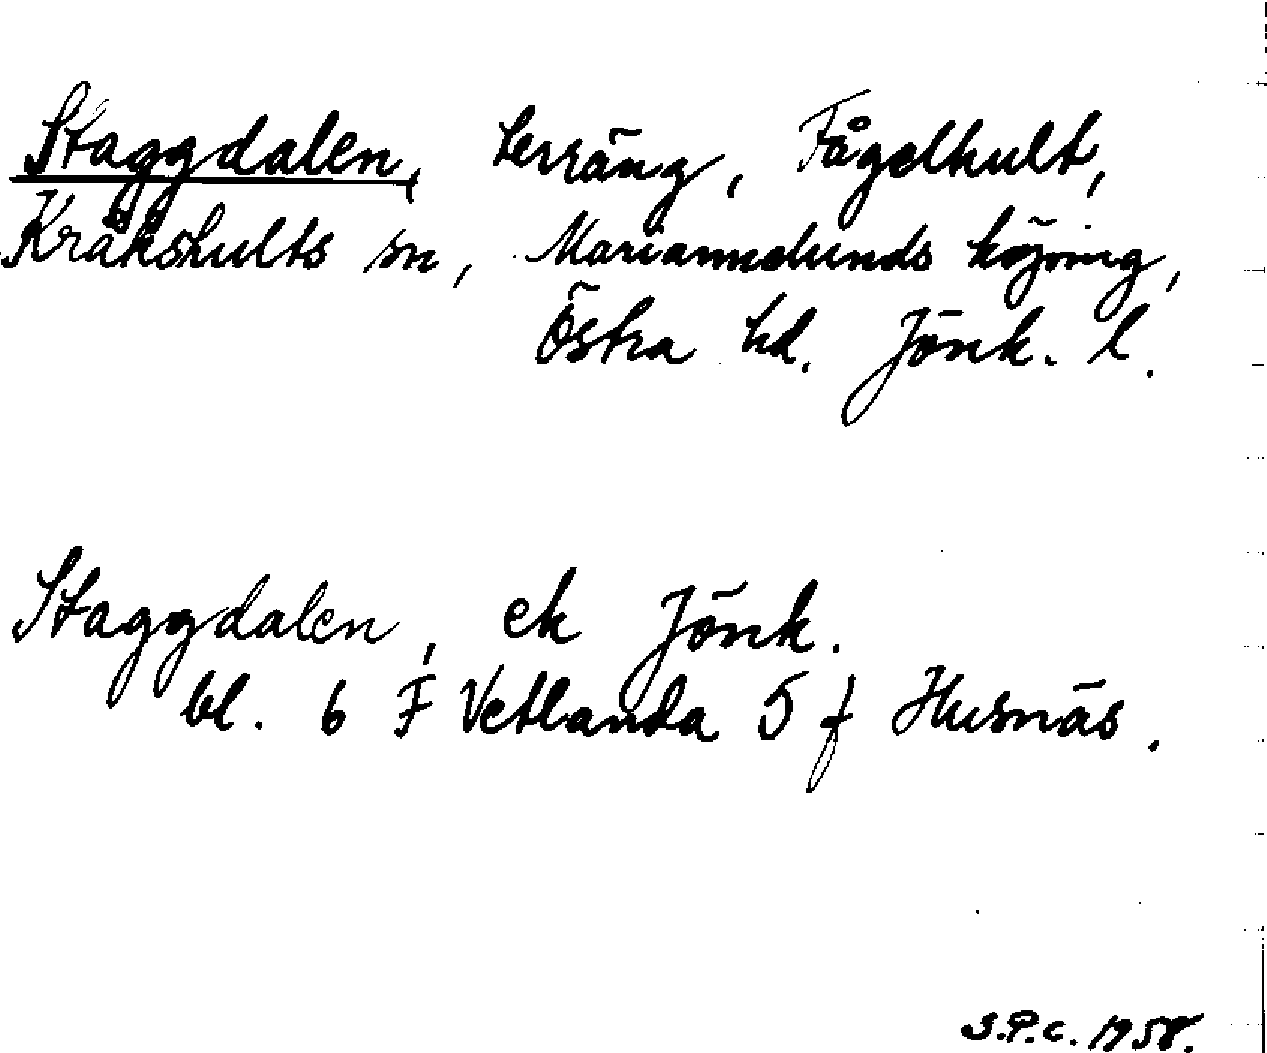 Staggdalen, terräng, Fågelhult,
Kråkshults sn, Mariannelunds köping,
Östra hd. Jönk. l.
Staggdalen, ek Jönk.
bl. 6 F Vetlanda 5 f Husnäs.
S.P.C. 1958.